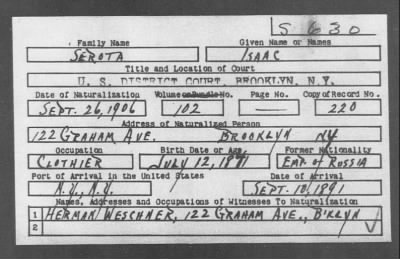 S 630
Family Name Given Name or Names
SEROTA ISAAC
Title and Location of Court
U. S. DISTRICT COURT, BROOKLYN, N.Y.
Date of Naturalization Volume or Bundle No. Page No. Copy of Record No.
SEPT. 26, 1906 102 — 220
Address of Naturalized Person
122 GRAHAM AVE. BROOKLYN NY
Occupation Birth Date or Age Former Nationality
CLOTHIER JULY 12, 1871 EMP. OF RUSSIA
Port of Arrival in the United States Date of Arrival
N.Y., N.Y. SEPT. 10, 1891
Names, Addresses and Occupations of Witnesses To Naturalization
1 HERMAN WESCHNER, 122 GRAHAM AVE., B'KLYN
2